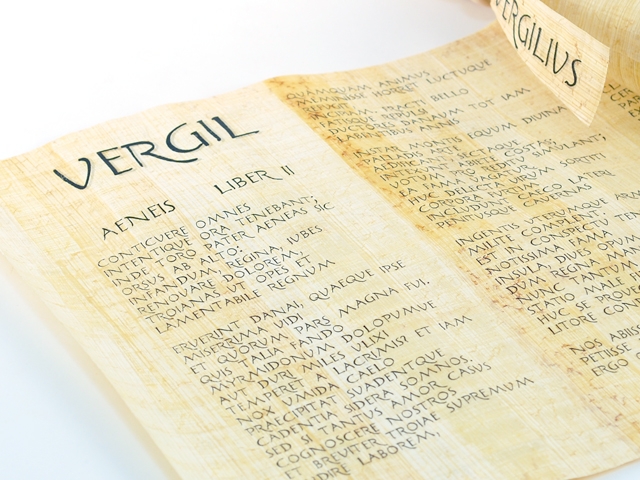 VERGILIVS
VERGIL
AENEIS LIBER II
CONTICUERE OMNES
INTENTIQUE ORA TENEBANT;
INDE TORO PATER AENEAS SIC
ORSUS AB ALTO:
INFANDUM, REGINA, IUBES
RENOVARE DOLOREM,
TROIANAS UT OPES ET
LAMENTABILE REGNUM
ERUERINT DANAI, QUAEQUE IPSE
MISERRIMA VIDI
ET QUORUM PARS MAGNA FUI.
QUIS TALIA FANDO
MYRMIDONUM DOLOPUMVE
AUT DURI MILES ULIXI
TEMPERET A LACRIMIS? ET IAM
NOX UMIDA CAELO
PRAECIPITAT SUADENTQUE
CADENTIA SIDERA SOMNOS.
SED SI TANTUS AMOR CASUS
COGNOSCERE NOSTROS
ET BREVITER TROIAE SUPREMUM
LABOREM,
QUAMQUAM ANIMUS
MEMINISSE HORRET LUCTUQUE
REFUGIT
INCIPIAM. FRACTI BELLO
FATISQUE REPULSI
DUCTORES DANAUM TOT IAM
LABENTIBUS ANNIS
INSTAR MONTIS EQUUM DIVINA
PALLADIS ARTE
ABIETE COSTAS;
VOTUM PRO REDITU SIMULANT;
EA FAMA VAGATUR.
HUC DELECTA VIRUM SORTITI
CORPORA FURTIM
INCLUDUNT CAECO LATERI
PENITUSQUE CAVERNAS
INGENTIS UTERUMQUE
MILITE COMPLENT.
EST IN CONSPECTU
NOTISSIMA FAMA
INSULA, DIVES OPUM
DUM REGNA
NUNC TANTUM
STATIO MALE
HUC SE
LITORE
NOS
PETIISSE
ERGO